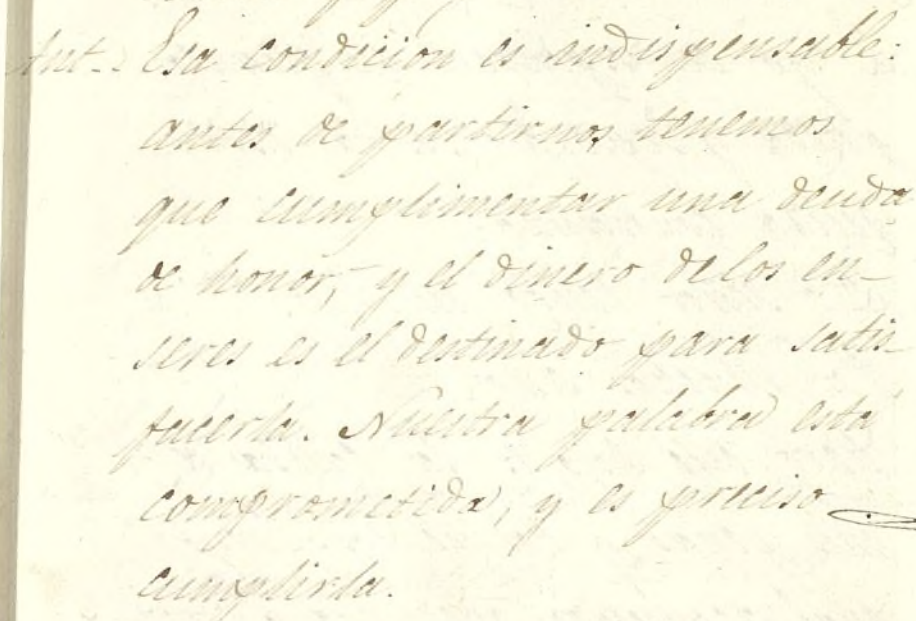 Ant.. Esa condicion es indispensable:
antes de partirnos, tenemos
que cumplimentar una deuda
de honor, y el dinero de los en-
seres es el destinado para satis-
facerla. Nuestra palabra está
comprometida, y es preciso
cumplirla.